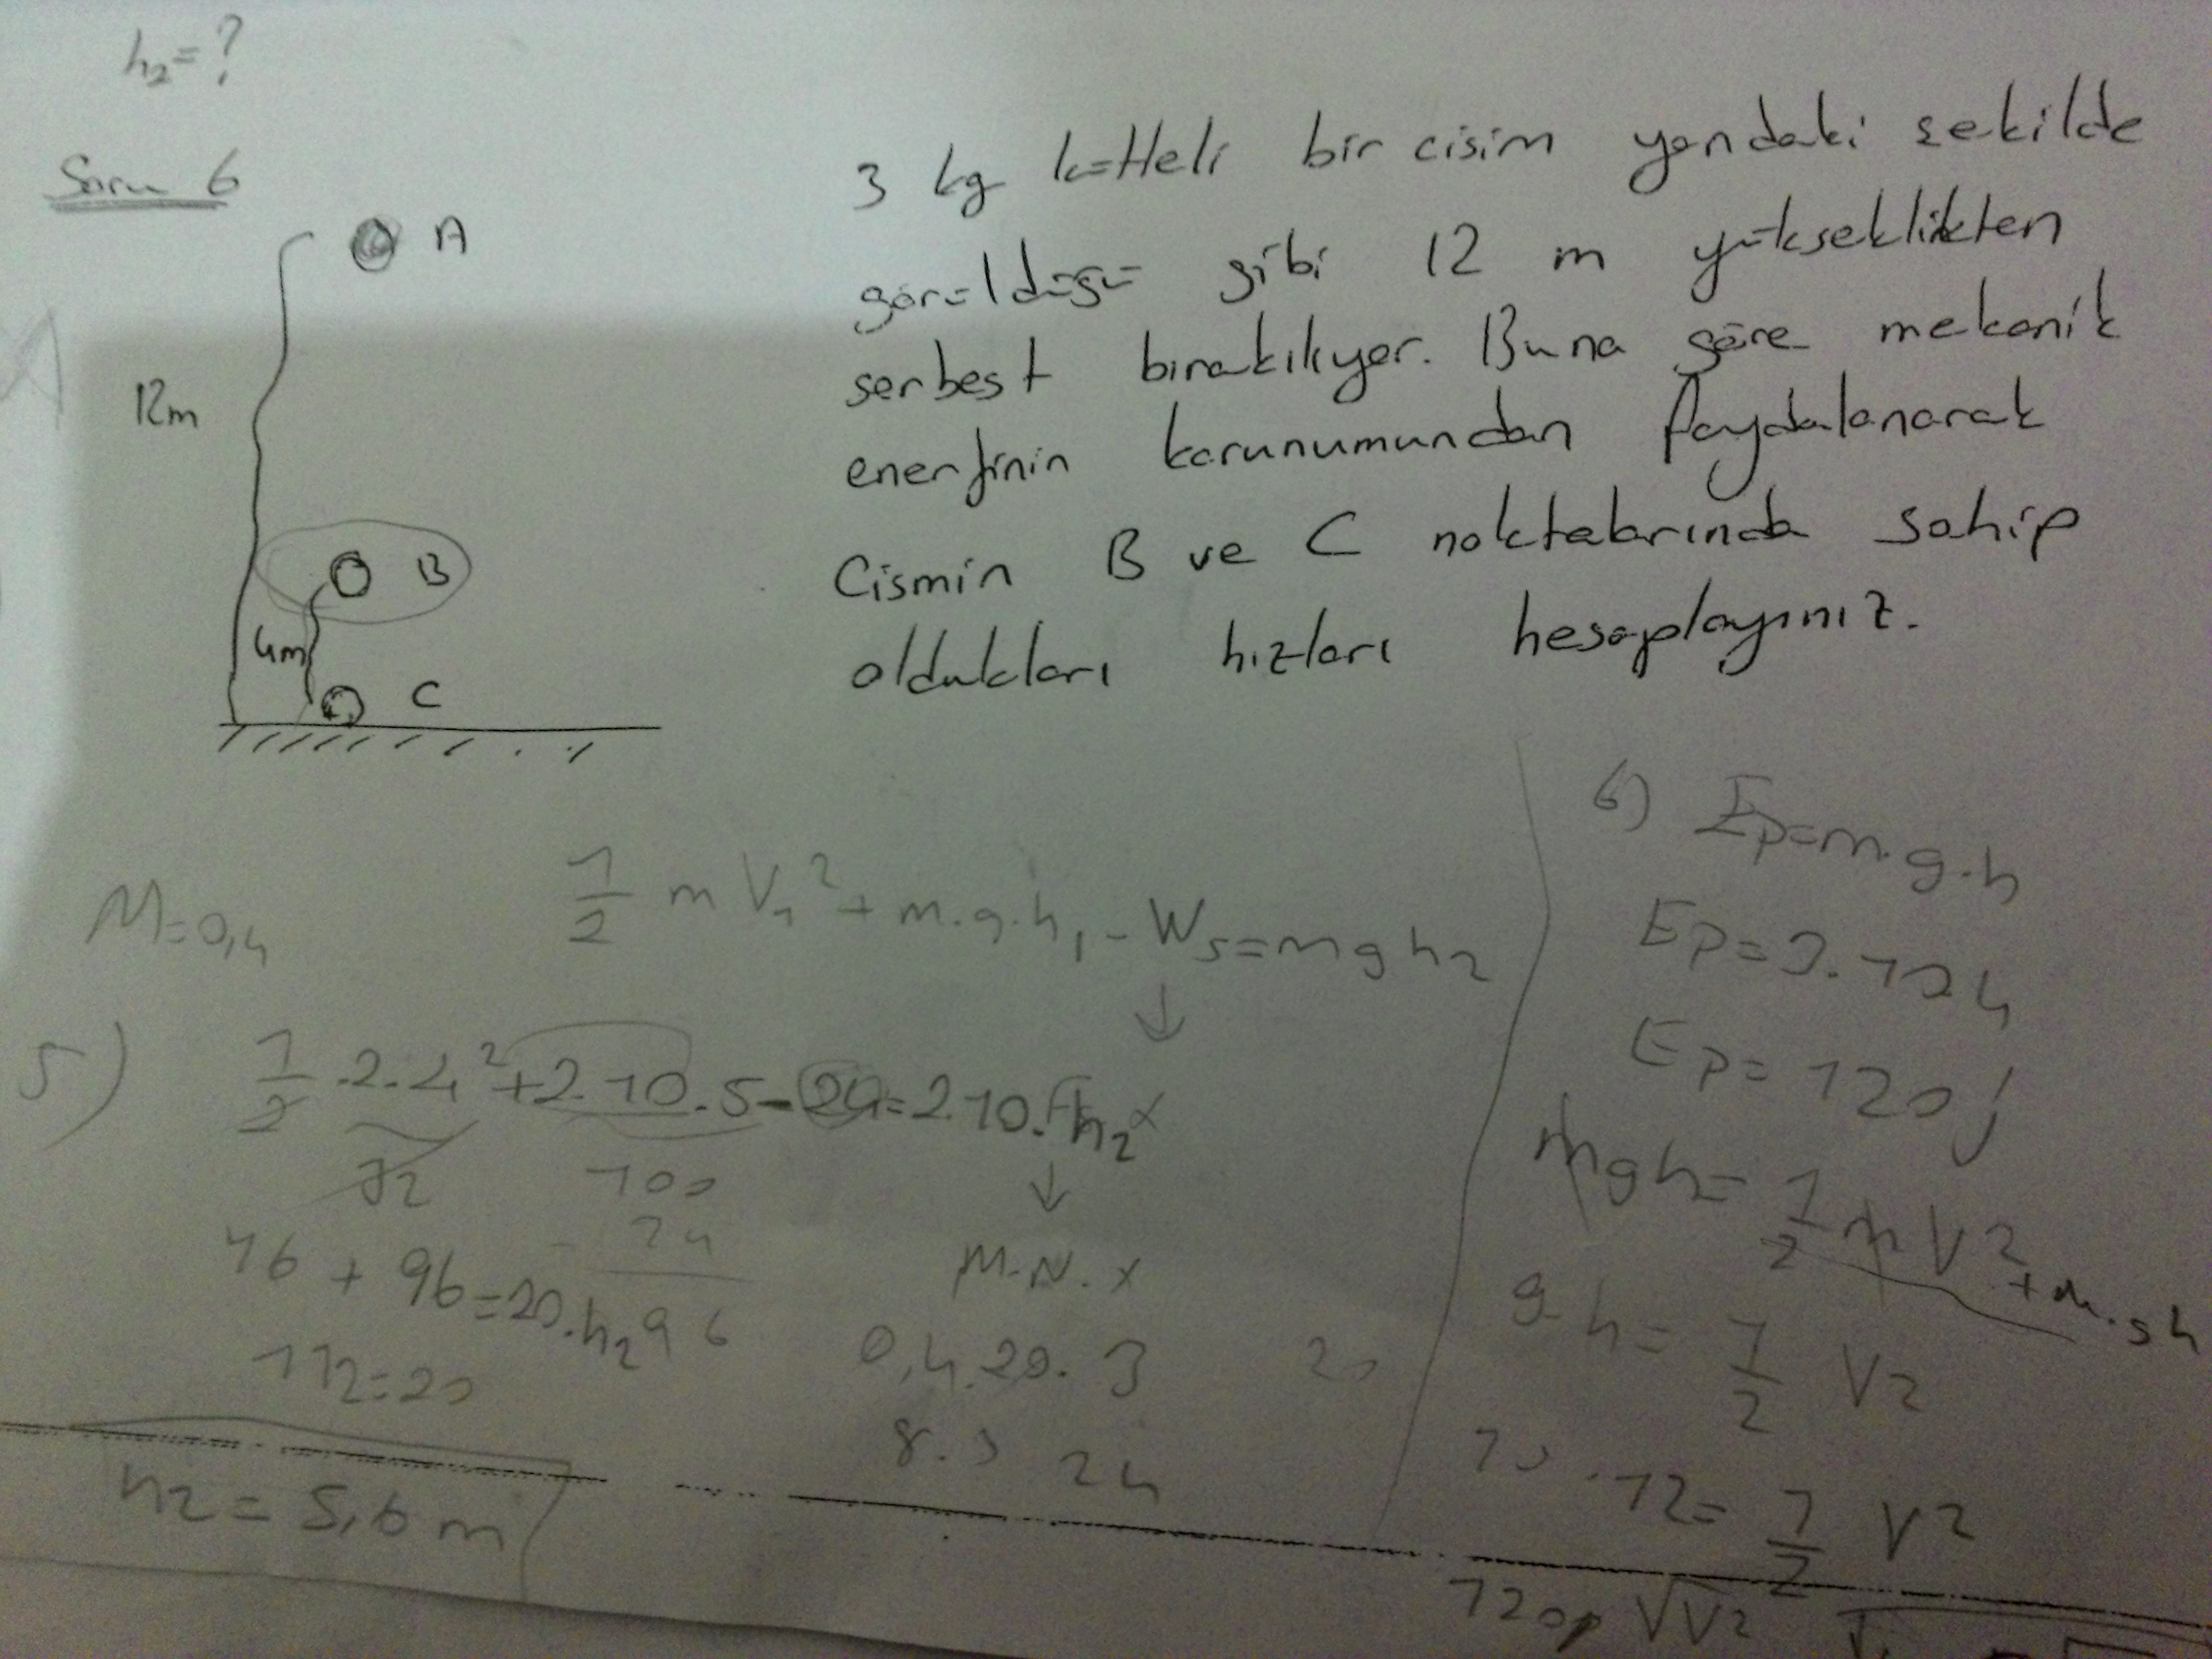 h₂=?
Soru 6
A
12m
B
4m
C
3 kg kütleli bir cisim yandaki şekilde
görüldüğü gibi 12 m yükseklikten
serbest bırakılıyor. Buna göre mekanik
enerjinin korunumundan faydalanarak
Cismin B ve C noktalarında sahip
oldukları hızları hesaplayınız.
M=0,4
1/2 m V₁² + m.g.h₁ - Ws = m g h₂
↓
5) 1/2 .2.4² + 2.10.5 - 24 = 2.10. h₂
100
24
96
16 + 96 = 20.h₂
112=20
h₂ = 5,6 m
↓
M.N.x
0,4.20.3
20
8.3 24
6) Ep=m.g.h
Ep=3.10 4
Ep=120 j
mgh = 1/2 m V2 + m.gh
gh = 1/2 V2
10.12 = 1/2 V2
120 √V2